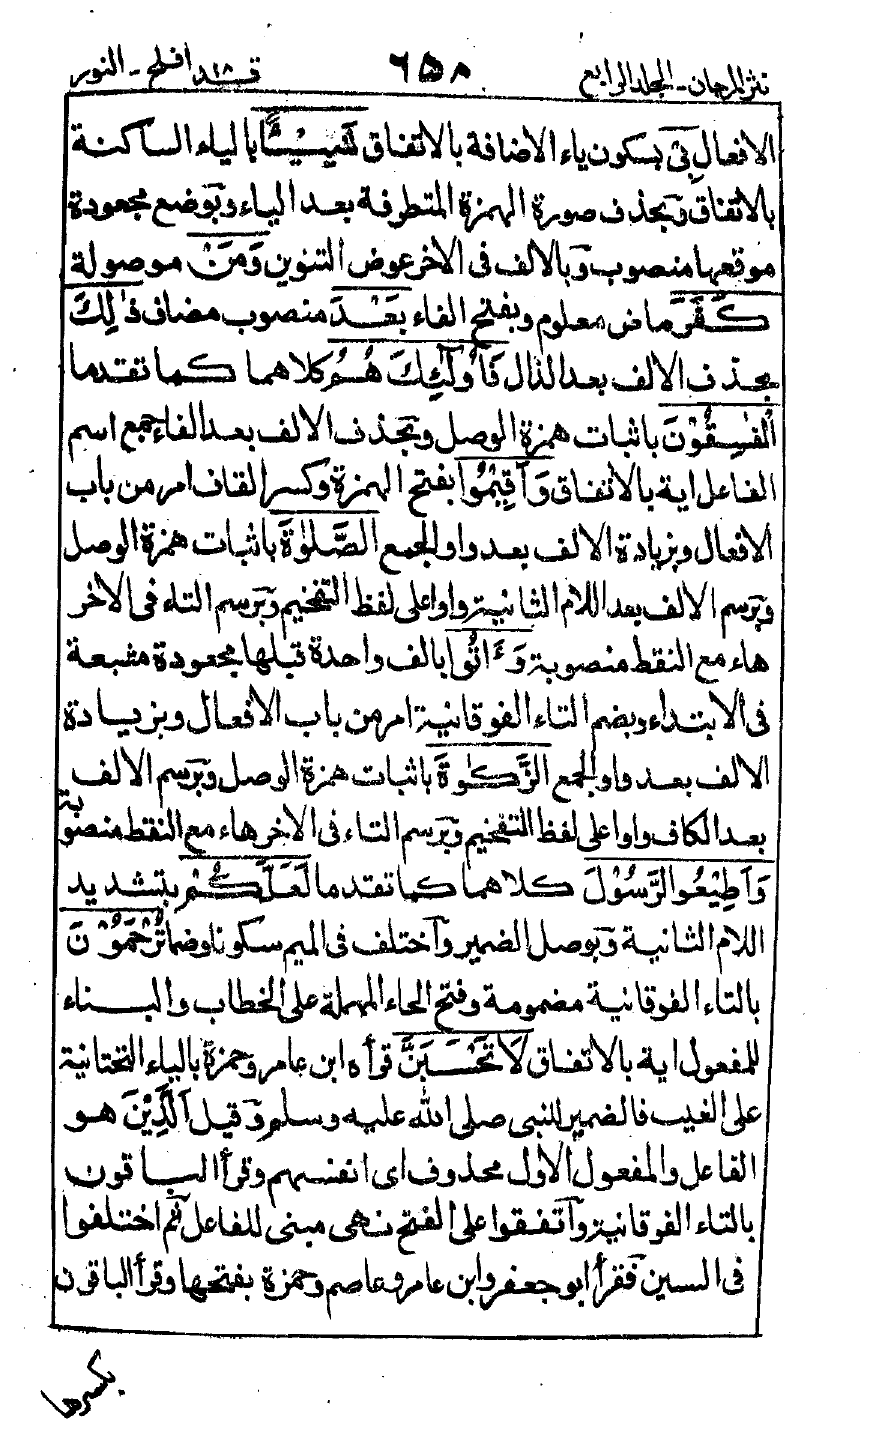 نثر المرجان - المجلد الرابع ٦٥٨ قد افلح ١٨ - النور
الافعال بِيْ بسكون ياء الاضافة بالاتفاق شَيْـًٔا بالياء الساكنة
بالاتفاق وَبحذف صورة الهمزة المتطرفة بعد الياء وبوضع مجعودة
موقعها منصوب وَبالالف فى الاخر عوض التنوين وَمَنْ موصولة
كَفَرَ ماض معلوم وبفتح الفاء بَعْدَ منصوب مضاف ذٰلِكَ
بحذف الالف بعد الذال فَاُولٰٓئِكَ هُمُ كلاهما كما تقدما
الْفٰسِقُوْنَ باثبات همزة الوصل وبحذف الالف بعد الفاء جمع اسم
الفاعل اية بالاتفاق وَاَقِيْمُوا بفتح الهمزة وكسر القاف امر من باب
الافعال وبزيادة الالف بعد واو الجمع الصَّلٰوةَ باثبات همزة الوصل
وَبرسم الالف بعد اللام الثانية واوا على لفظ التفخيم وَبرسم التاء فى الاخر
هاء مع النقط منصوبة وَءَاتُوا بالف واحدة قبلها مجعودة مشبعة
فى الابتداء وبضم التاء الفوقانية امر من باب الافعال وبزيادة
الالف بعد واو الجمع الزَّكٰوةَ باثبات همزة الوصل وَبرسم الالف
بعد الكاف واوا على لفظ التفخيم وَبرسم التاء فى الاخر هاء مع النقط منصوبة
وَاَطِيْعُوا الرَّسُوْلَ كلاهما كما تقدما لَعَلَّكُمْ بتشديد
اللام الثانية وَبوصل الضمير وَاختلف فى الميم سكونا وضما تُرْحَمُوْنَ
بالتاء الفوقانية مضمومة وفتح الحاء المهملة على الخطاب والبناء
للمفعول اية بالاتفاق لَا تَحْسَبَنَّ قرأه ابن عامر وحمزة بالياء التحتانية
على الغيب فالضمير للنبى صلى الله عليه وسلم وَقيل الَّذِيْنَ هو
الفاعل والمفعول الاول محذوف اى انفسهم وقرأ الباقون
بالتاء الفوقانية وَاتفقوا على الفتح نهى مبنى للفاعل ثم اختلفوا
فى السين فقرأ ابو جعفر وابن عامر وعاصم وحمزة بفتحها وقرأ الباقون
بكسرها